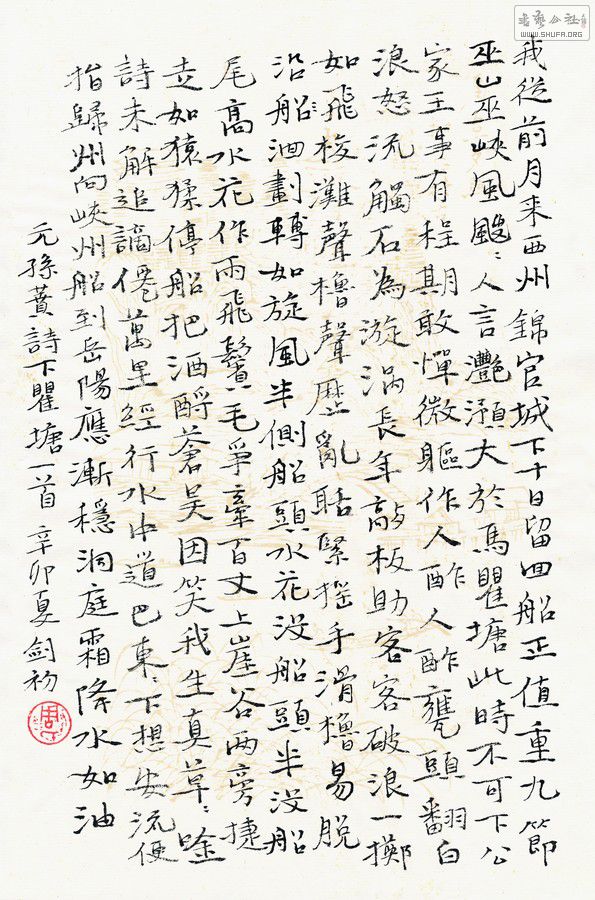 我從前月来西州錦官城下十日留回船正值重九節
巫山巫峽風颼〻人言灧澦大於馬瞿塘此時不可下公
家王事有程期敢憚微軀作人鮓人鮓甕頭翻白
浪怒流觸石為漩渦長年敲板助客客破浪一擲
如飛梭灘聲櫓聲歷亂聒緊摇手滑櫓易脱
沿船洄劃轉如旋風半側船頭水花没船頭半没船
尾高水花作雨飛鬢毛爭牽百丈上崖谷兩旁捷
走如猿猱停船把酒酹蒼昊因笑我生真草〻唫
詩未解追謫僊萬里經行水中道巴東〻下想安流便
指歸州向峽州船到岳陽應漸穩洞庭霜降水如油
元孫蕡詩下瞿塘一首 辛卯夏 劍初
書藝公社
WWW.SHUFA.ORG